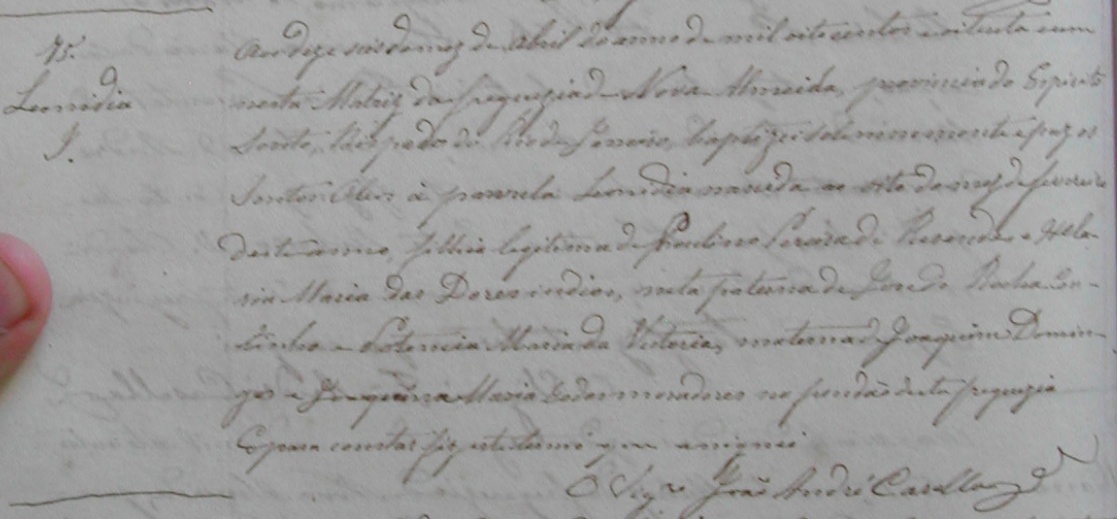 75. Aos dezeseis do mez de Abril do anno de mil oito centos e oitenta e um
Leonidia nesta Matriz da freguezia de Nova Almeida, provincia do Espirito
I. Santo, Bispado do Rio de Janeiro, baptizei solemnemente e puz os
Santos Oleos à parvula Leonidia nascida ao oito do mez de fevereiro
deste anno, filha legitima de Paulino Pereira de Rezendes e Hila-
ria Maria das Dores indios, neta paterna de José da Rocha Cou-
tinho e Potencia Maria da Victoria, materna de Joaquim Domin-
gos e Maria todos moradores no fundão desta freguezia
E para constar fiz este termo que assignei
O Vigro João André Casella